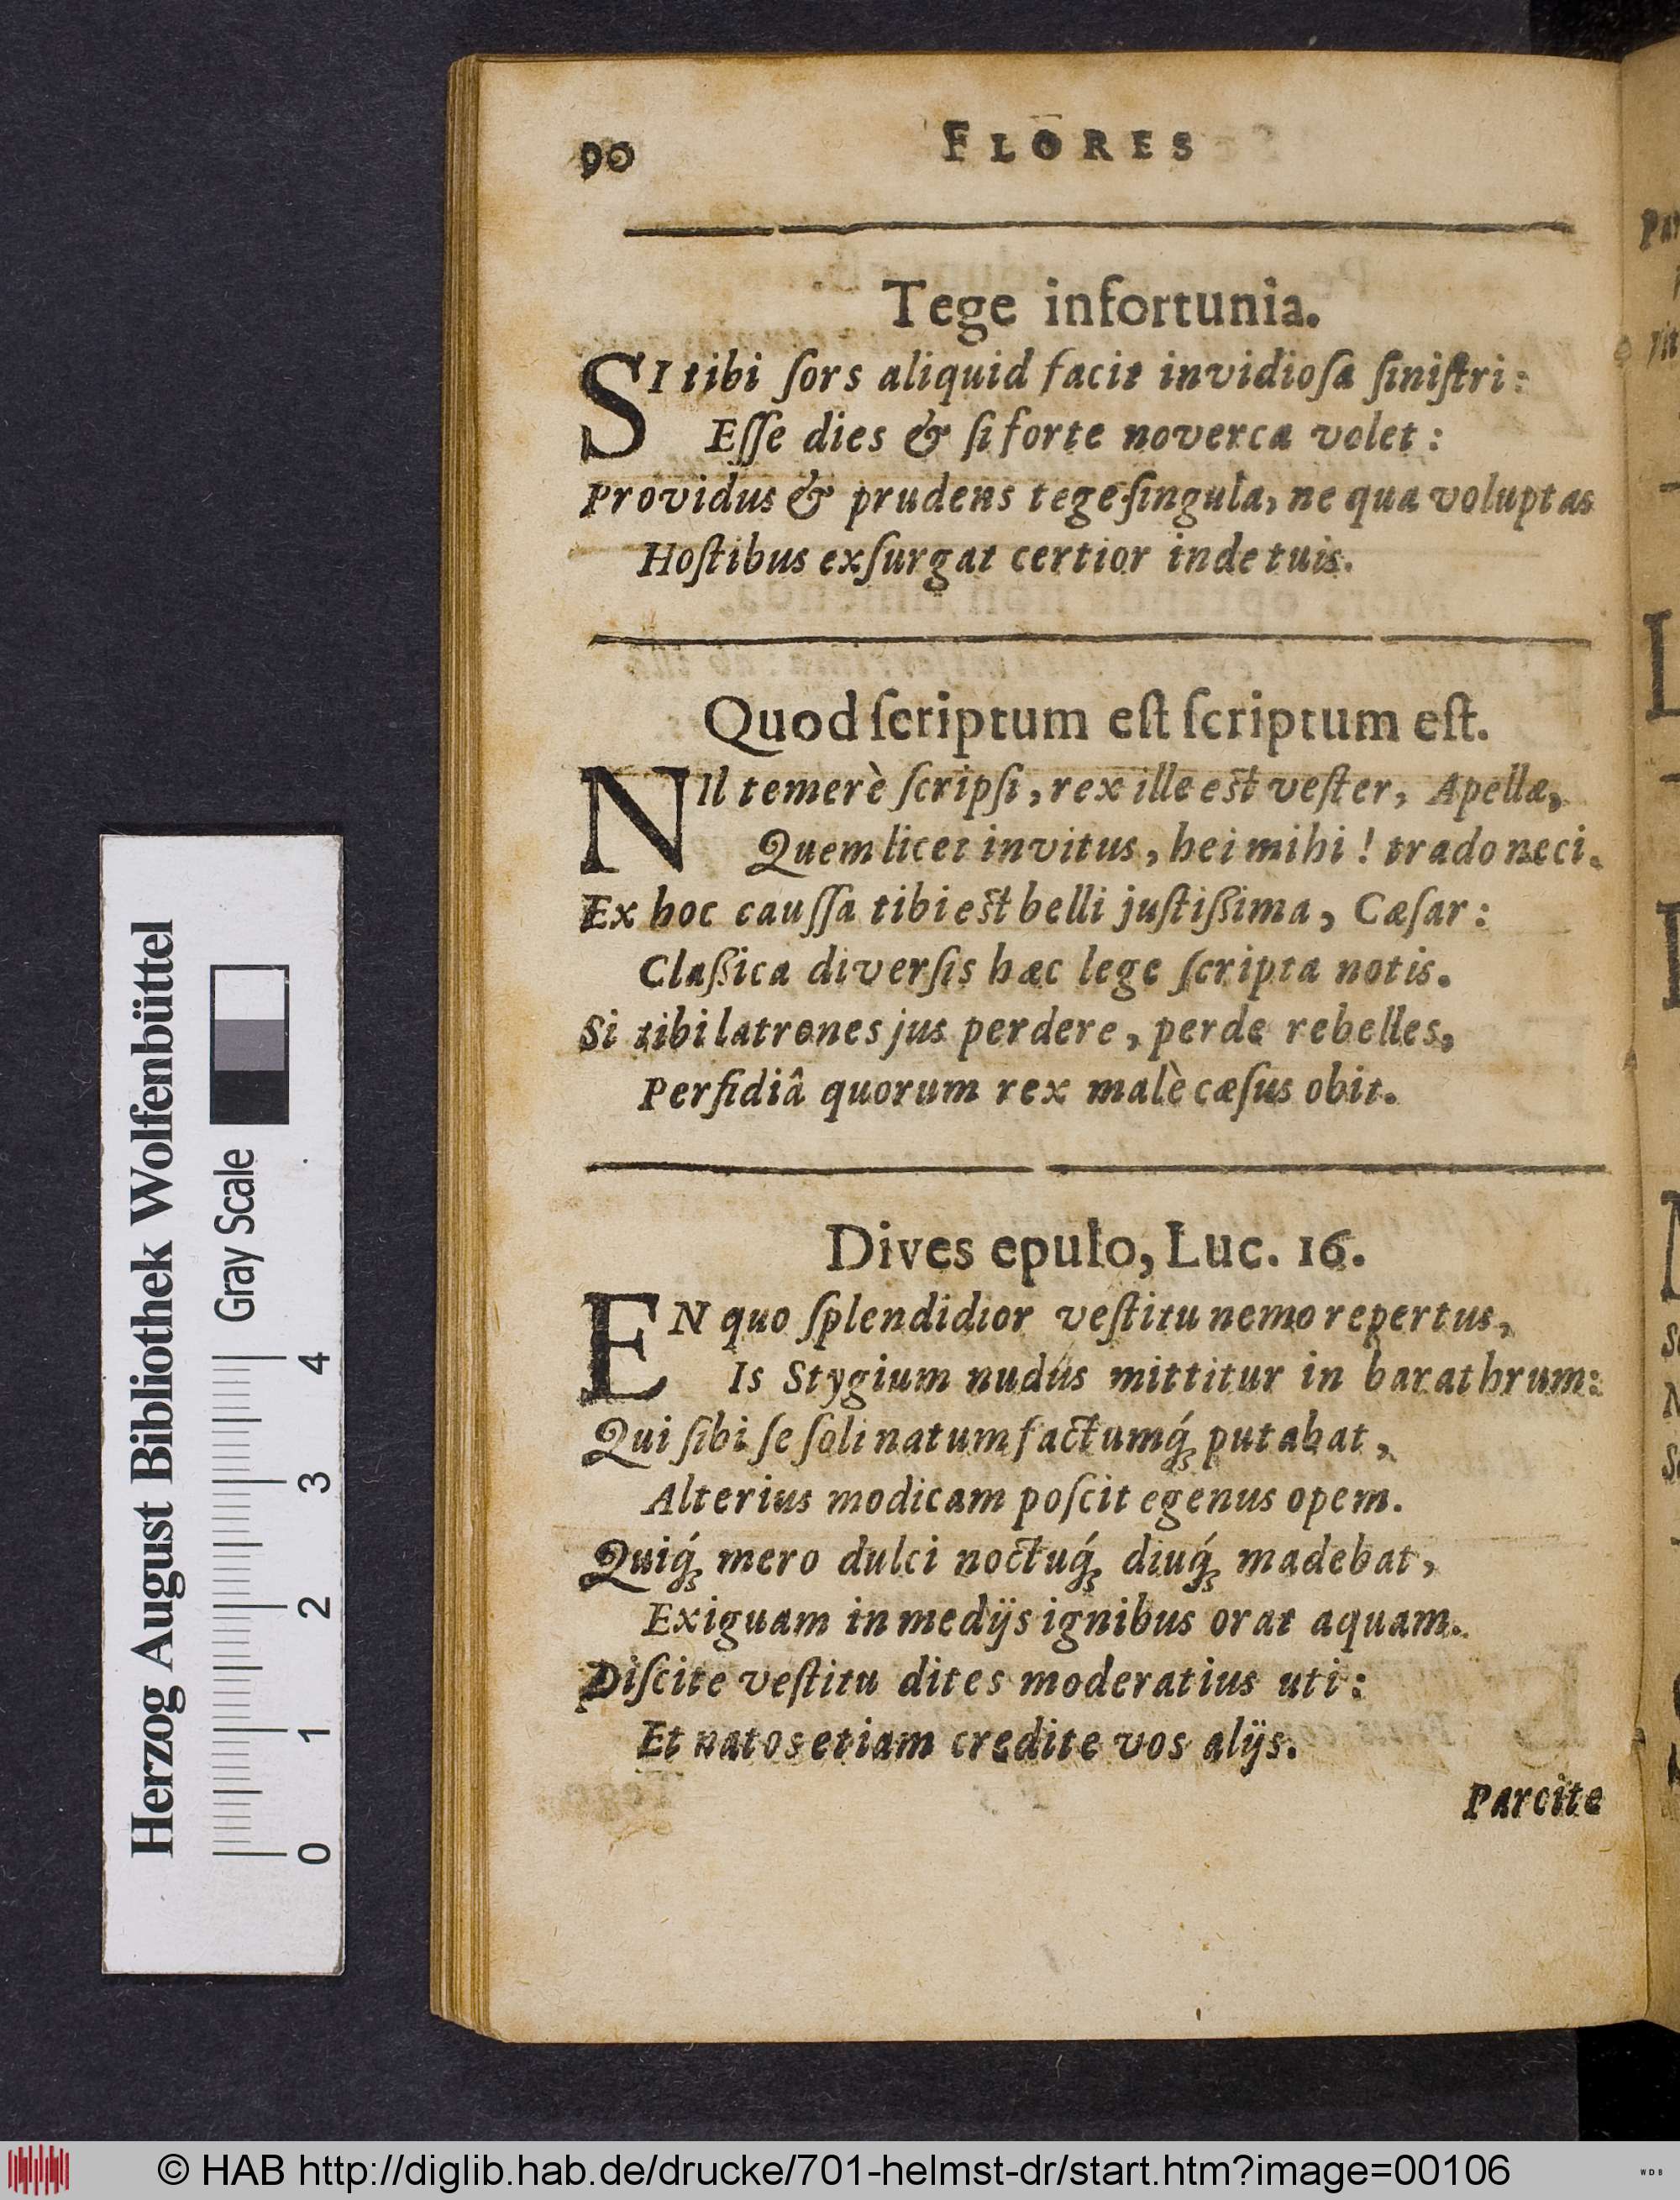 90
FLORES
Tege infortunia.
SI tibi ſors aliquid facit invidioſa ſiniſtri:
Eſſe dies & ſi forte noverca volet:
Providus & prudens tege ſingula, ne qua voluptas
Hoſtibus exſurgat certior inde tuis.
Quod ſcriptum eſt ſcriptum eſt.
NIl temerè ſcripſi, rex ille eſt veſter, Apella,
Quem licet invitus, hei mihi! trado neci.
Ex hoc cauſſa tibi eſt belli juſtißima, Cæſar:
Claßica diverſis hæc lege ſcripta notis.
Si tibi latrones jus perdere, perde rebelles,
Perfidiâ quorum rex malè cæſus obit.
Dives epulo, Luc. 16.
EN quo ſplendidior veſtitu nemo repertus,
Is Stygium nudus mittitur in barathrum:
Qui ſibi ſe ſoli natum factumq́; putabat,
Alterius modicam poſcit egenus opem.
Quiq́; mero dulci noctuq́; diuq́; madebat,
Exiguam in medijs ignibus orat aquam.
Diſcite veſtitu dites moderatius uti:
Et natos etiam credite vos alijs.
Parcite
Herzog August Bibliothek Wolfenbüttel
Gray Scale
0 1 2 3 4
© HAB http://diglib.hab.de/drucke/701-helmst-dr/start.htm?image=00106
WDB